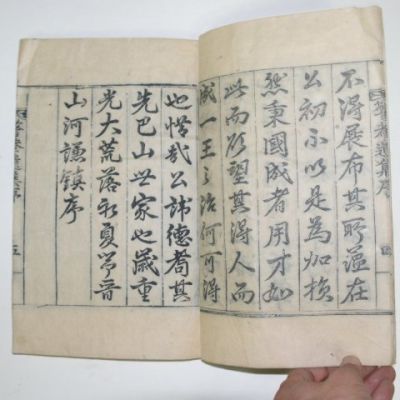 不得展布其所蘊在
公初不以是為加損
然秉國成者用才如
此而欲望其得人而
成一王之治何可得
也惜哉公諱德其
先巴山世家也歲重
光大荒落夏晉
山河謙鎮序
序
四
序
五